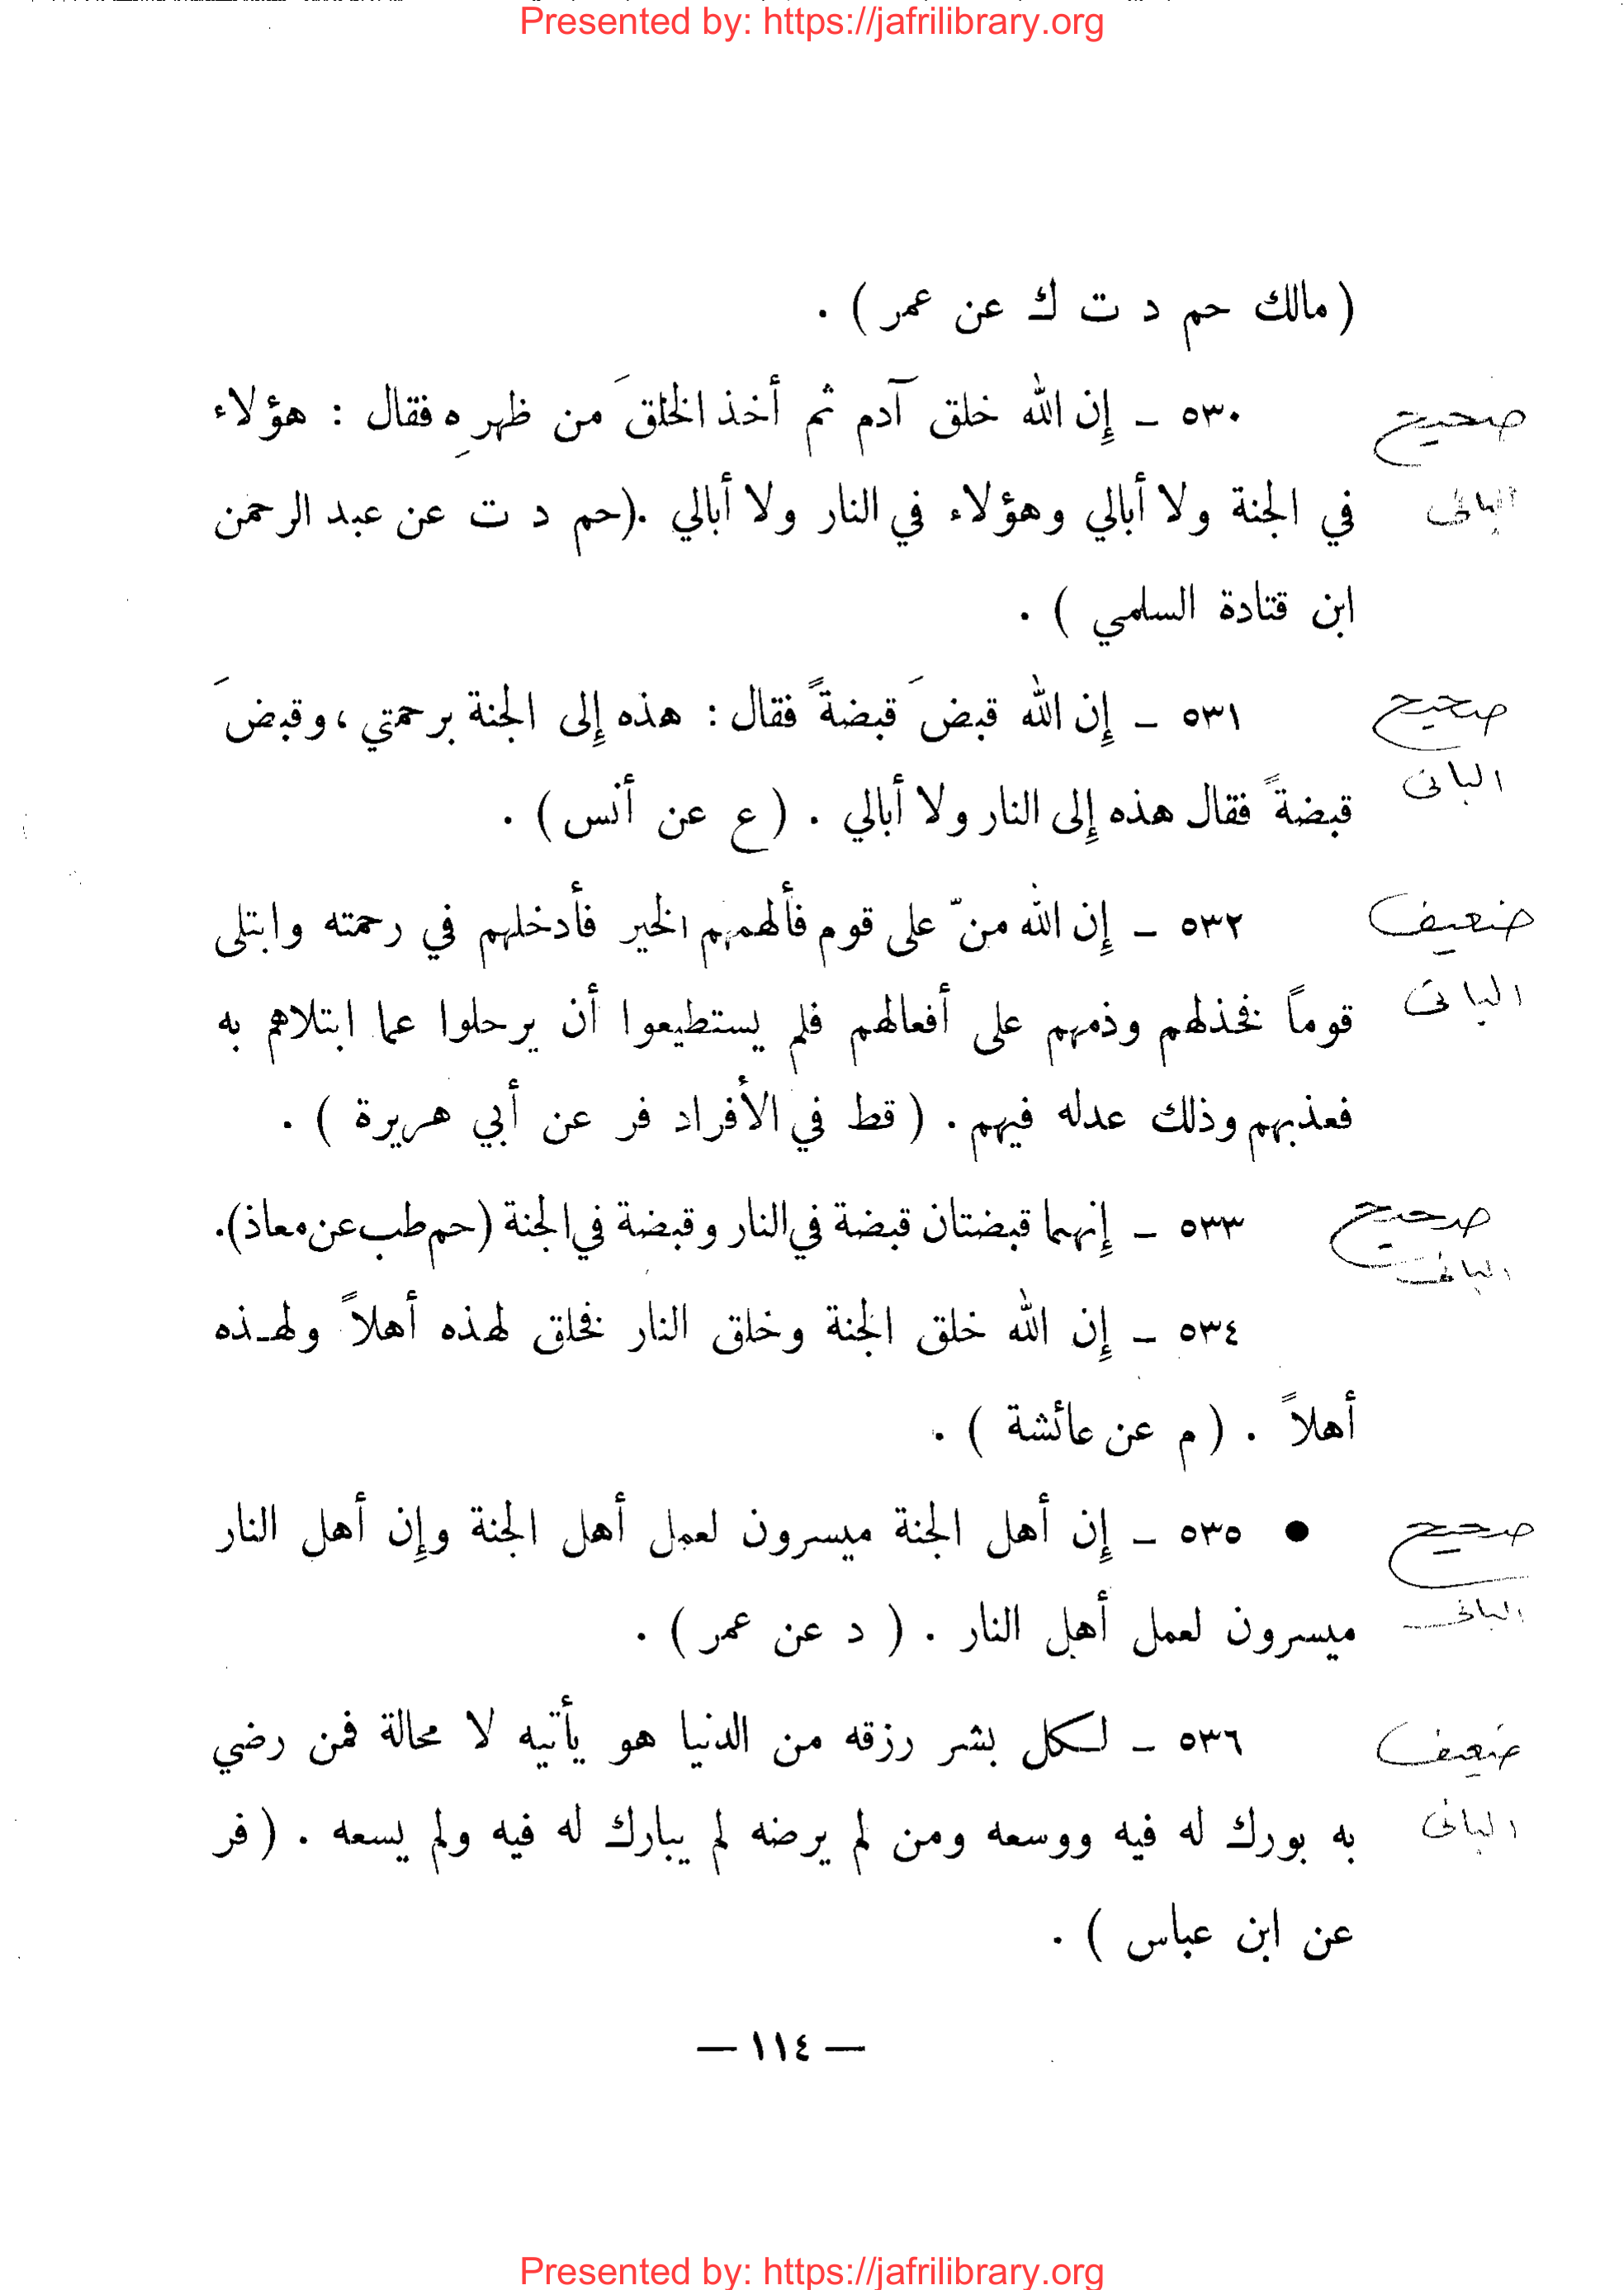 Presented by: https://jafrilibrary.org
( مالك حم د ت ك عن عمر ) .
صحيح
٥٣٠ ـ إِن الله خلق آدم ثم أخذ الخلقَ من ظهرِه فقال : هؤلاء
البانى
في الجنة ولا أبالي وهؤلاء في النار ولا أبالي .(حم د ت عن عبد الرحمن
ابن قتادة السلمي ) .
صحيح
٥٣١ ـ إِن الله قبضَ قبضةً فقال : هذه إِلى الجنة برحمتي ، وقبضَ
البانى
قبضةً فقال هذه إِلى النار ولا أبالي . ( ع عن أنس ) .
ضعيف
٥٣٢ ـ إِن الله منّ على قوم فألهمهم الخير فأدخلهم في رحمته وابتلى
البانى
قوماً فخذلهم وذمهم على أفعالهم فلم يستطيعوا أن يرحلوا عما ابتلاهم به
فعذبهم وذلك عدله فيهم . ( قط في الأفراد فر عن أبي هريرة ) .
صحيح
٥٣٣ ـ إِنهما قبضتان قبضة في النار وقبضة في الجنة (حم طب عن معاذ).
البانى
٥٣٤ ـ إِن الله خلق الجنة وخلق النار فخلق لهذه أهلاً ولهـذه
أهلاً . ( م عن عائشة ) .
صحيح
● ٥٣٥ ـ إِن أهل الجنة ميسرون لعمل أهل الجنة وإِن أهل النار
البانى
ميسرون لعمل أهل النار . ( د عن عمر ) .
ضعيف
٥٣٦ ـ لـكل بشر رزقه من الدنيا هو يأتيه لا محالة فمن رضي
البانى
به بورك له فيه ووسعه ومن لم يرضه لم يبارك له فيه ولم يسعه . ( فر
عن ابن عباس ) .
— ١١٤ —
Presented by: https://jafrilibrary.org